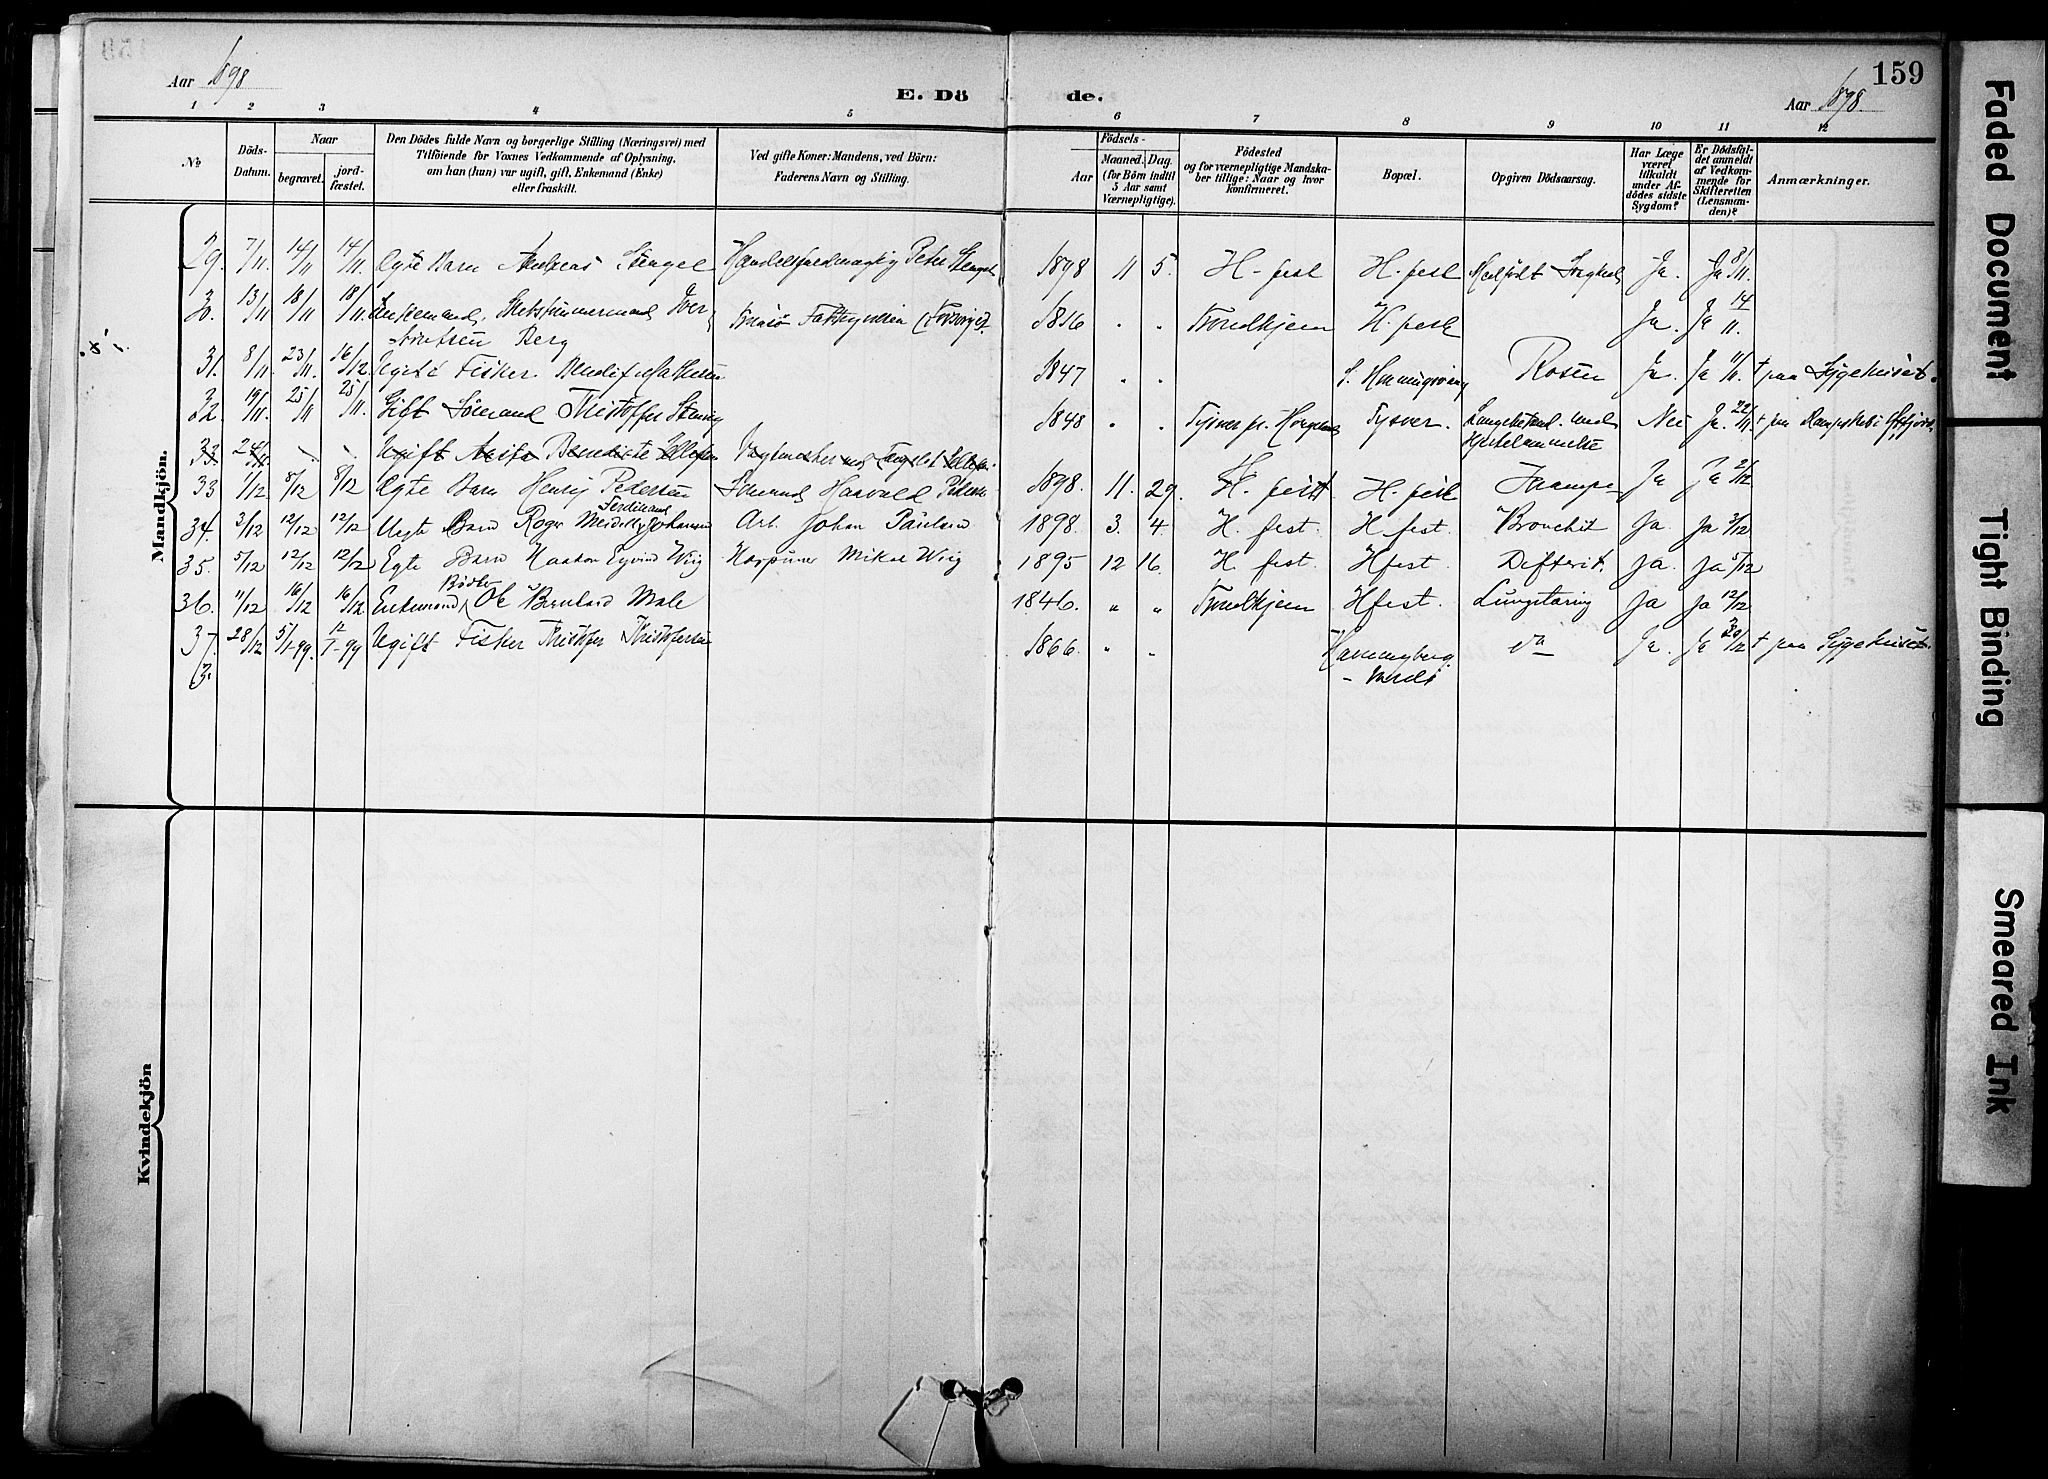 159
Aar 1898
E. Dö
de.
Aar 1898.
1 2 3 4 5 6 7 8 9 10 11 12
No
Döds-Datum.
Naar
begravet.
jord-fæstet.
Den Dödes fulde Navn og borgerlige Stilling (Næringsvei) med
Tilföiende for Voxnes Vedkommende af Oplysning,
om han (hun) var ugift, gift, Enkemand (Enke)
eller fraskilt.
Ved gifte Koner: Mandens, ved Börn:
Faderens Navn og Stilling.
Födsels-
Aar
Maaned. Dag.
(for Börn indtil
5 Aar samt
Værnepligtige).
Födested
og for værnepligtige Mandska-
ber tillige: Naar og hvor
konfirmeret.
Bopæl.
Opgiven Dödsaarsag.
Har Læge
været
tilkaldt
under Af-
dödes sidste
Sygdom?
Er Dödsfal-
det anmeldt
af Vedkom-
mende for
Skifteretten
(Lensman-
den)?
Anmærkninger.
Mandkjön.
29. 7/11 14/11 14/11. Ægte Barn Andreas Stengel Handelsfuldmægtig Peter Stengel 1898 11 5. H-fest H. fest Medfödt Svaghed Ja. Ja 8/11.
30. 13/11 18/11 18/11. Enkemand, Skibstømmermand Iver 1816 " " Trondhjem H. fest Ja. Ja 14/11.
Berg
31. 8/11 23/11 16/12 Fisker 1847 " " S. Honningsvaag Rosen Ja. Ja 11/11. † paa Sygehuset.
32. 19/11 25/11 25/11. Gift Sömand Kristoffer 1848 " " Tysvær Tysvær. med Nei Ja. 22/11. † paa
Hjertelammelse
33 24/11 Ugift Benedicte Ellefsen
33 1/12 8/12 8/12 Ægte Barn Henrij Pedersen Sömand Haavald Peders 1898. 11. 29. H. fest H. fest Krampe Ja Ja 2/12
Ferdinand
34. 3/12 12/12 12/12 Uegte Barn Roger Johansen Arb. Johan Paulsen 1898. 3. 4. H. fest. H fest. Bronchit Ja. Ja 3/12
35. 5/12 12/12 12/12 Egte Barn Haakon Eyvind Wiig Harpuner Mikal Wiig 1895 12 16 H. fest. Hfest. Difterit. Ja. Ja 5/12
Bödker
36. 11/12 16/12 16/12 Enkemand Ole Bernhard Male 1846. " " Trondhjem Hfest. Lungetæring Ja Ja 12/12
37. 28/12 5/1-99. 12/1-99 Ugift Fisker Kristofer Kristofersen 1866. " " Hammingberg da Ja. Ja 29/12 † paa Sygehuset.
- Vardö
Kvindekjön
Faded Document
Tight Binding
Smeared Ink